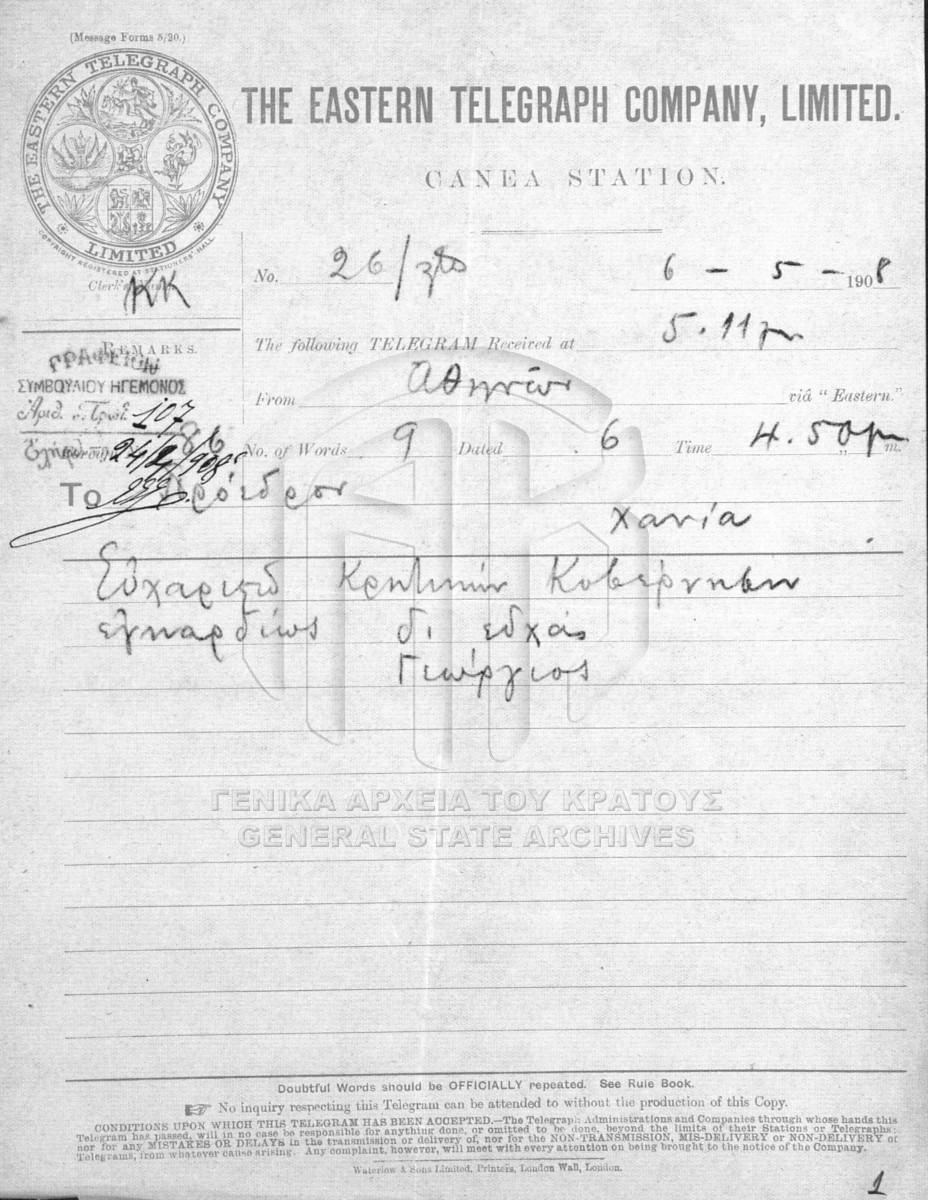 (Message Forms 5/20.)
THE EASTERN TELEGRAPH COMPANY
LIMITED
COPYRIGHT REGISTERED AT STATIONERS' HALL
THE EASTERN TELEGRAPH COMPANY, LIMITED.
CANEA STATION.
Clerk's Name.
KK
No. 26/ 6 - 5 - 1908
REMARKS.
The following TELEGRAM Received at 5.11
ΓΡΑΦΕΙΟΝ
ΣΥΜΒΟΥΛΙΟΥ ΗΓΕΜΟΝΟΣ
Ἀριθ. Πρωτ. 107
From Αθηνών viâ "Eastern."
24/4/908
No. of Words 9 Dated 6 Time 4.50 pm m.
To Πρόεδρον
Χανία
Ευχαριστώ Κρητικήν Κυβέρνησιν
εγκαρδίως δι ευχάς
Γεώργιος
ΓΕΝΙΚΑ ΑΡΧΕΙΑ ΤΟΥ ΚΡΑΤΟΥΣ
GENERAL STATE ARCHIVES
Doubtful Words should be OFFICIALLY repeated. See Rule Book.
☞ No inquiry respecting this Telegram can be attended to without the production of this Copy.
CONDITIONS UPON WHICH THIS TELEGRAM HAS BEEN ACCEPTED.—The Telegraph Administrations and Companies through whose hands this
Telegram has passed, will in no case be responsible for anything done, or omitted to be done, beyond the limits of their Stations or Telegraphs;
nor for any MISTAKES OR DELAYS in the transmission or delivery of, nor for the NON-TRANSMISSION, MIS-DELIVERY or NON-DELIVERY of
Telegrams, from whatever cause arising. Any complaint, however, will meet with every attention on being brought to the notice of the Company.
Waterlow & Sons Limited, Printers, London Wall, London.
1